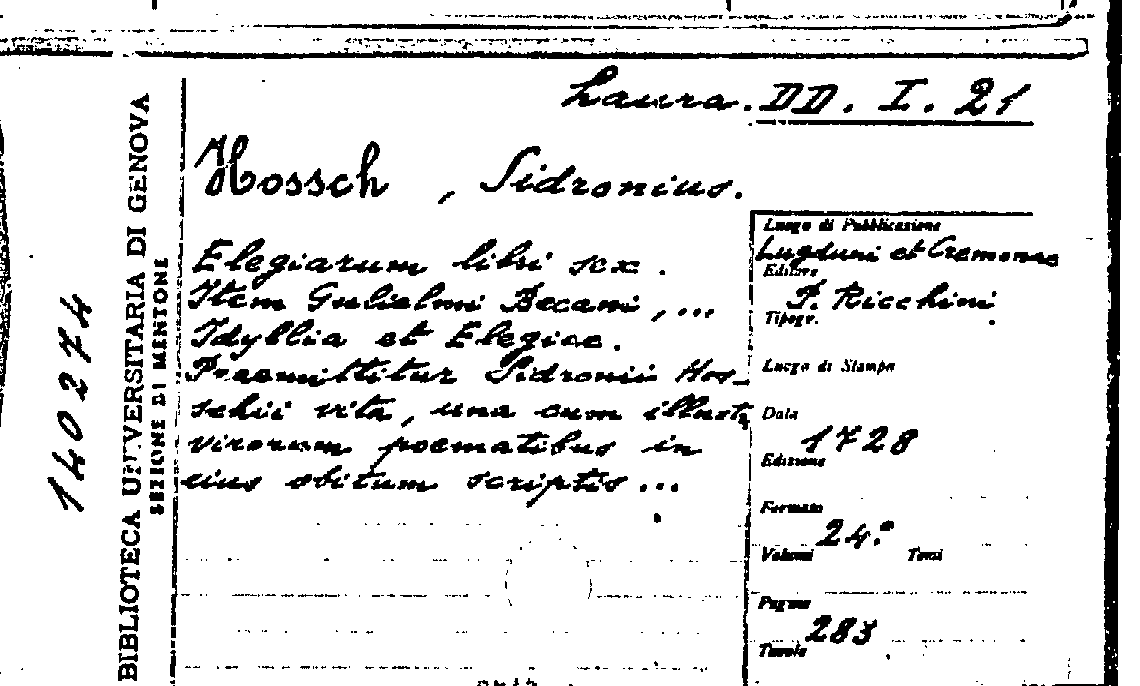 Laura. DD. I. 21
Hossch, Sidronius.
Elegiarum libri sex.
Item Gulielmi Becami, ...
Idyllia et Elegiae.
Praemittitur Sidronii Hos-
schii vita, una cum illustr
virorum poematibus in
eius obitum scriptis ...
Luogo di Pubblicazione
Lugduni et Cremonae
Editore
P. Ricchini
Tipogr.
Luogo di Stampa
Data
1728
Edizione
Formato
24.°
Volumi Tomi
Pagine
283
Tavole
BIBLIOTECA UNIVERSITARIA DI GENOVA
SEZIONE DI MENTONE
140274